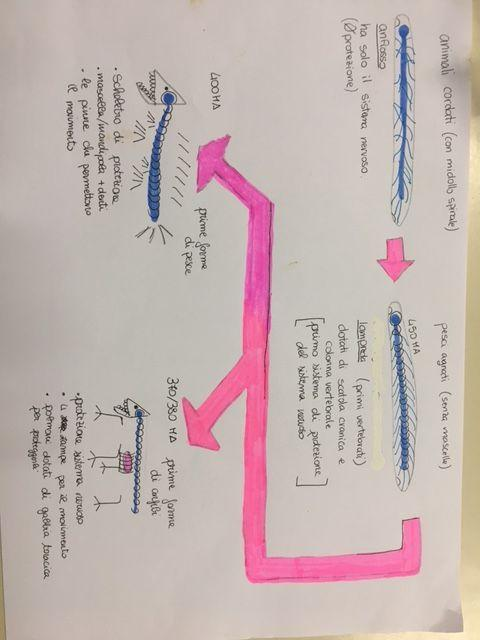 animali cordati (con midollo spinale)
anfiosso
ha solo il sistema nervoso
(Ø protezione)
pesci agnati (senza mascelle)
450 MA
lampreda (primi vertebrati)
dotati di scatola cranica e
colonna vertebrale
[primo sistema di protezione
del sistema nervoso]
400 MA
prime forme
di pesce
• scheletro di protezione
• mascella/mandibola + denti
• le pinne che permettono
il movimento
370/380 MA
prime forme
di anfibi
• protezione sistema nervoso
• 4 zampe per il movimento
• polmoni dotati di gabbia toracica
per proteggerli